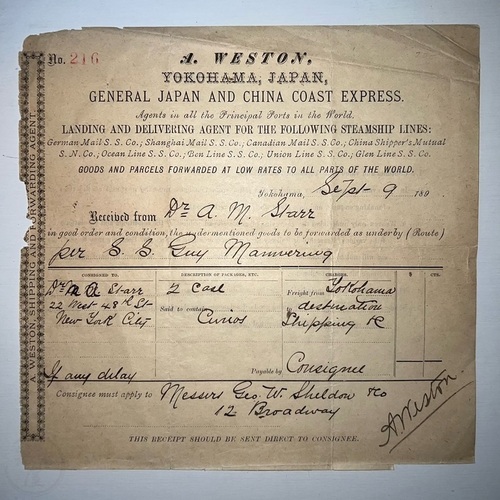 No. 216
A. WESTON,
YOKOHAMA, JAPAN,
GENERAL JAPAN AND CHINA COAST EXPRESS.
Agents in all the Principal Ports in the World.
LANDING AND DELIVERING AGENT FOR THE FOLLOWING STEAMSHIP LINES:
German Mail S. S. Co.; Shanghai Mail S. S. Co.; Canadian Mail S. S. Co.; China Shipper's Mutual
S. N. Co.; Ocean Line S. S. Co.; Ben Line S. S. Co.; Union Line S. S. Co.; Glen Line S. S. Co.
GOODS AND PARCELS FORWARDED AT LOW RATES TO ALL PARTS OF THE WORLD.
Yokohama, Sept 9 189
Received from Dr A. M. Starr
in good order and condition, the undermentioned goods to be forwarded as under by (Route)
per S. S. Guy Mannering
CONSIGNED TO. DESCRIPTION OF PACKAGES, ETC. CHARGES. $ CTS.
Dr M A Starr 2 Case Freight from Yokohama
22 West 48th St Said to contain to destination
New York City Curios Shipping
Payable by Consignee
If any delay
Consignee must apply to Messers Geo. W. Sheldon & Co
12 Broadway
A Weston
THIS RECEIPT SHOULD BE SENT DIRECT TO CONSIGNEE.
A. WESTON, SHIPPING AND FORWARDING AGENT.